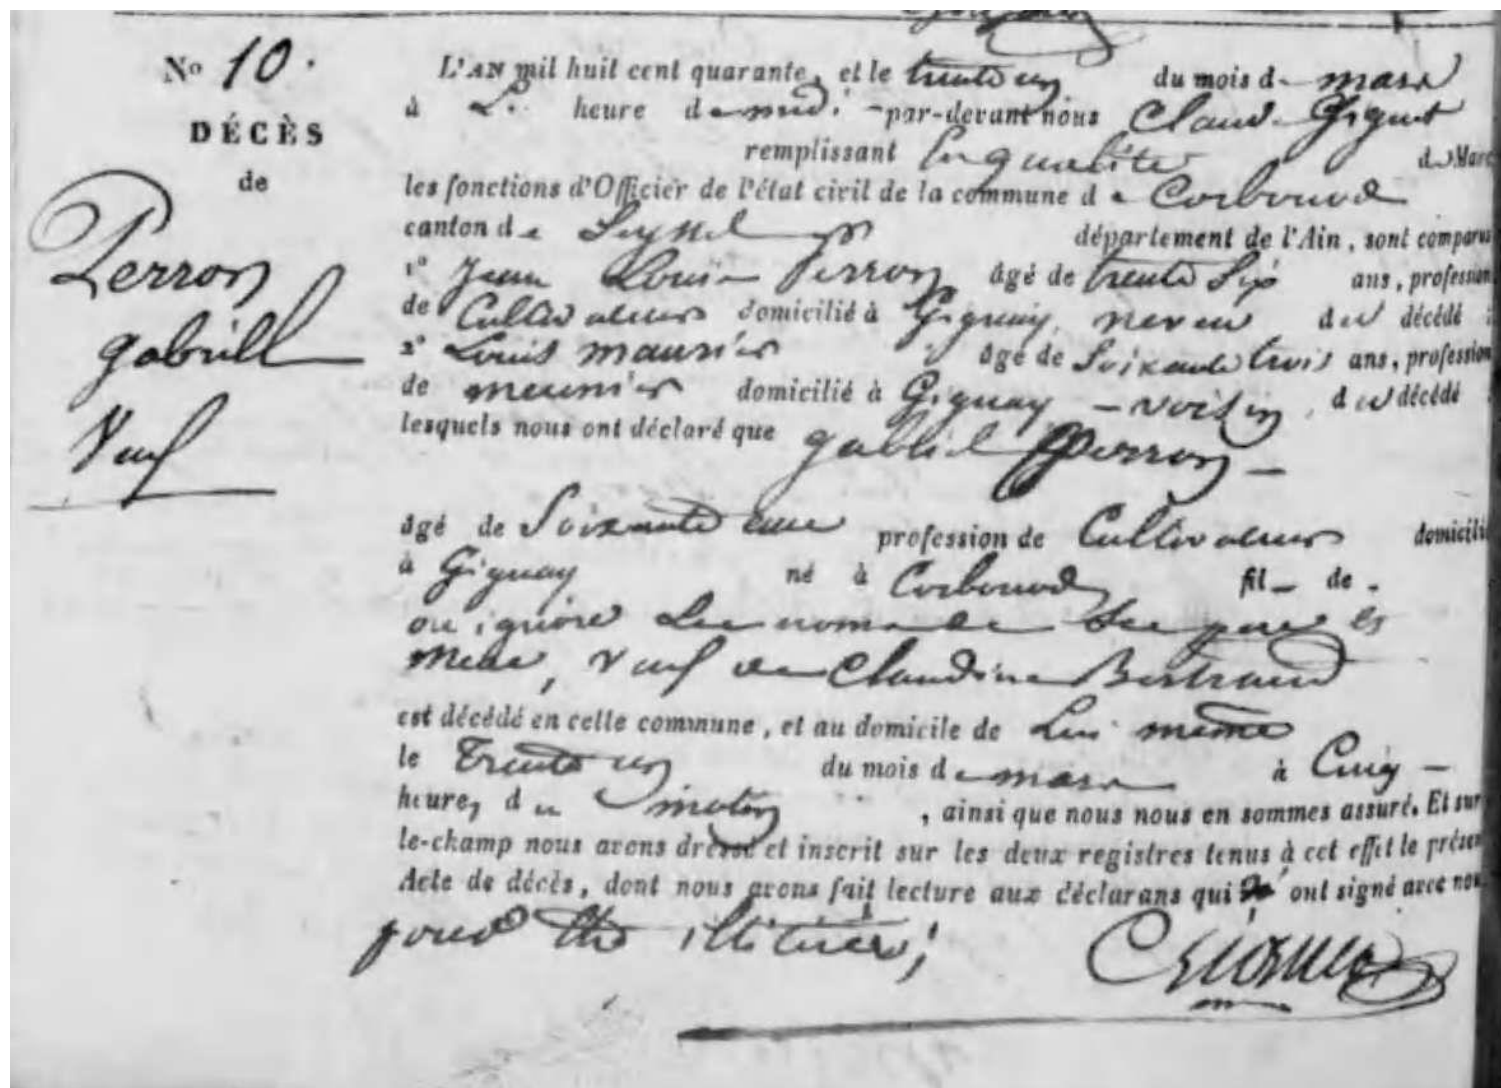 No 10.
DÉCÈS
de
Perron
gabriell
Veuf
L'AN mil huil cent quarante, et le trente un du mois de mars
à heure de midi par-devant nous Claude Gignet
remplissant en qualité de Mare
les fonctions d'Officier de l'état civil de la commune de Corbonod
canton de Seyssel département de l'Ain, sont comparus
1° Jean Louis Perron âgé de trente Six ans, profession
de Cultivateur domicilié à Gignay, neveu du décédé
2° Louis maunier âgé de Soixante trois ans, profession
de meunier domicilié à Gignay - voisin, du décédé
lesquels nous ont déclaré que gabriel Perron -
âgé de Soixante profession de Cultivateur domicilié
à Gignay né à Corbonod fil- de -
on ignore Les noms de Ses père et
mere, Veuf de Claudine Bertrand
est décédé en cette commune, et au domicile de Lui même
le Trente un du mois de mars à Cinq -
heures du matin, ainsi que nous nous en sommes assuré. Et sur
le-champ nous avons dressé et inscrit sur les deux registres tenus à cet effet le présen
Acte de décès, dont nous avons fait lecture aux déclarans qui ont signé avec nou
pour être illitirés;